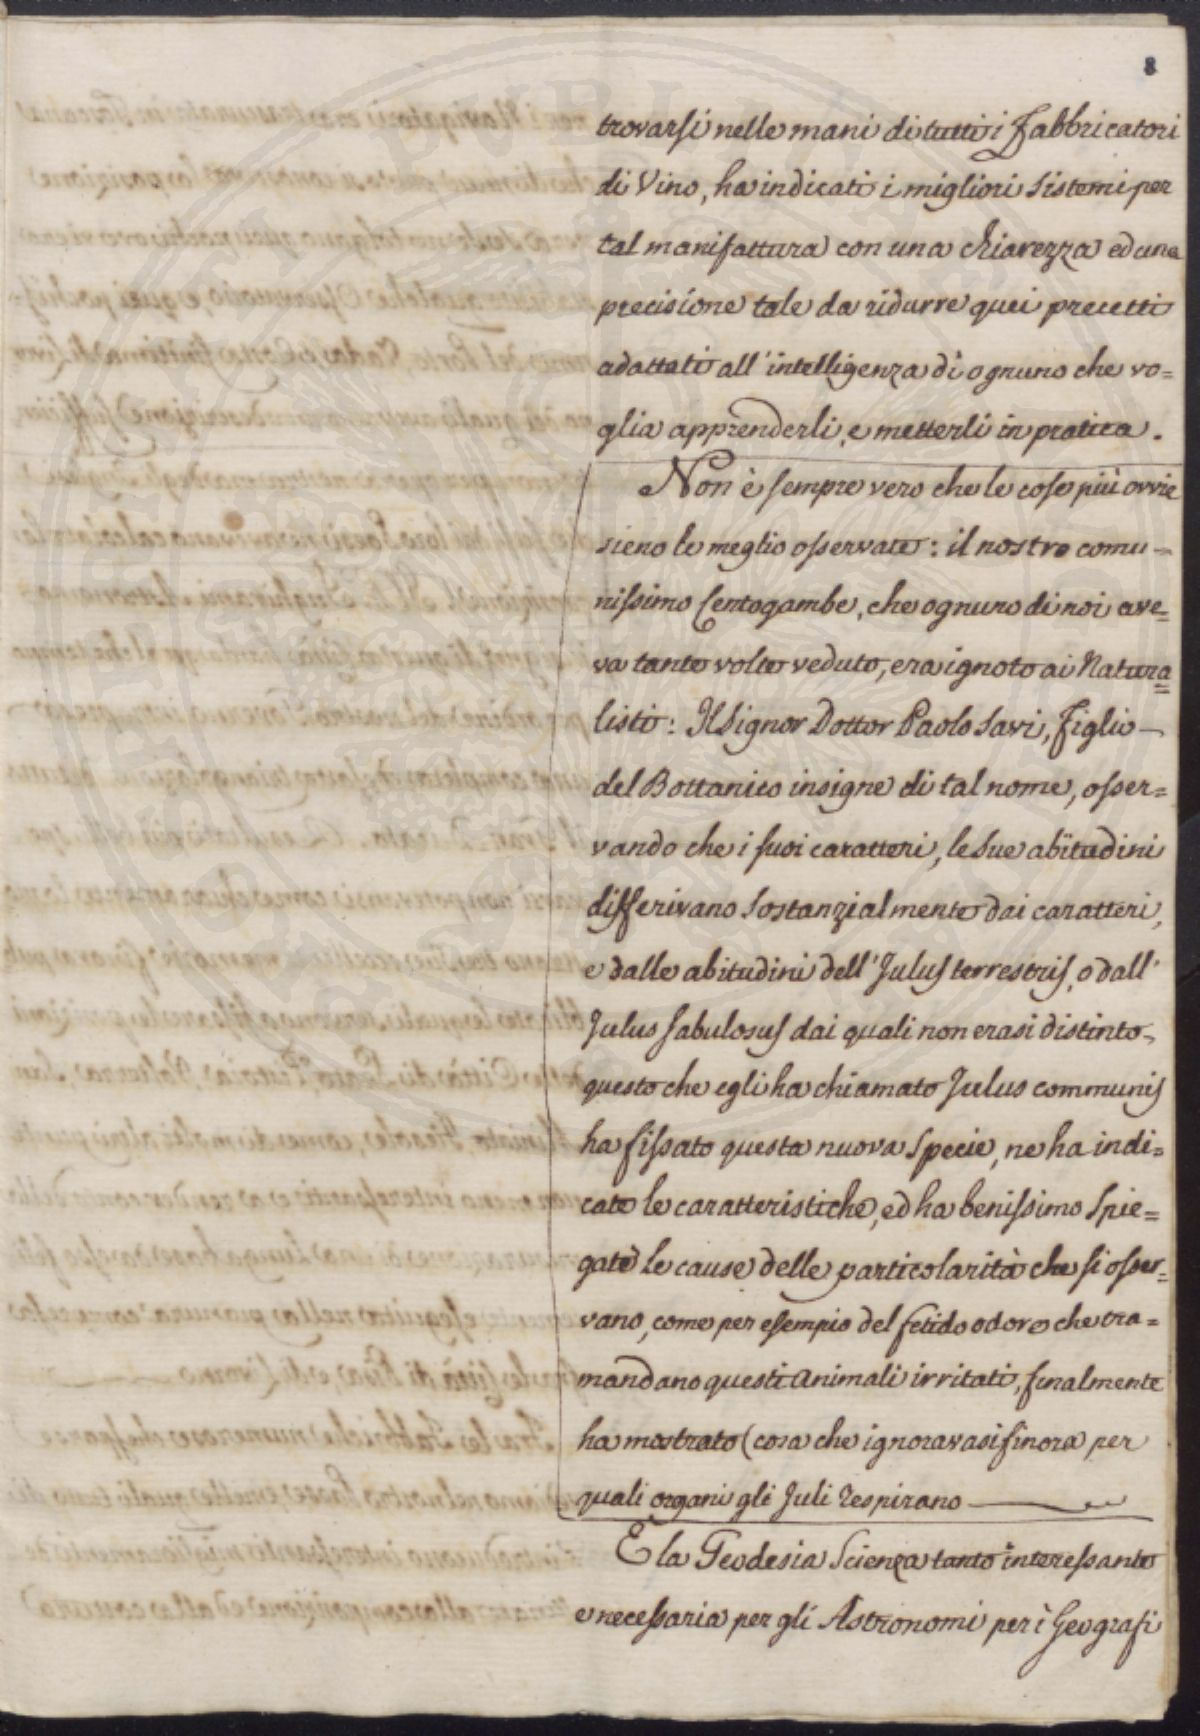 8
trovarsi nelle mani di tutti i Fabbricatori
di Vino, ha indicati i migliori Sistemi per
tal manifattura con una chiarezza ed una
precisione tale da ridurre quei precetti
adattati all'intelligenza di ognuno che vo=
glia apprenderli, e metterli in pratica.
Non è sempre vero che le cose più ovvie
sieno le meglio osservate: il nostro comu=
nissimo Centogambe, che ognuno di noi ave=
va tante volte veduto, era ignoto ai Natura=
listi: Il Signor Dottor Paolo Savi, Figlio
del Bottanico insigne di tal nome, osser=
vando che i suoi caratteri, le sue abitudini
differivano Sostanzialmente dai caratteri,
e dalle abitudini dell'Julus terrestris, o dall'
Julus Sabulosus dai quali non erasi distinto
questo che egli ha chiamato Julus communis
ha fissato questa nuova Specie, ne ha indi=
cate le caratteristiche, ed ha benissimo Spie=
gate le cause delle particolarità che si osser=
vano, come per esempio del fetido odore che tra=
mandano questi Animali irritati, finalmente
ha mostrato (cosa che ignoravasi finora per
quali organi gli Juli respirano
E la Geodesia Scienza tanto interessante
e necessaria per gli Astronomi per i Geografi